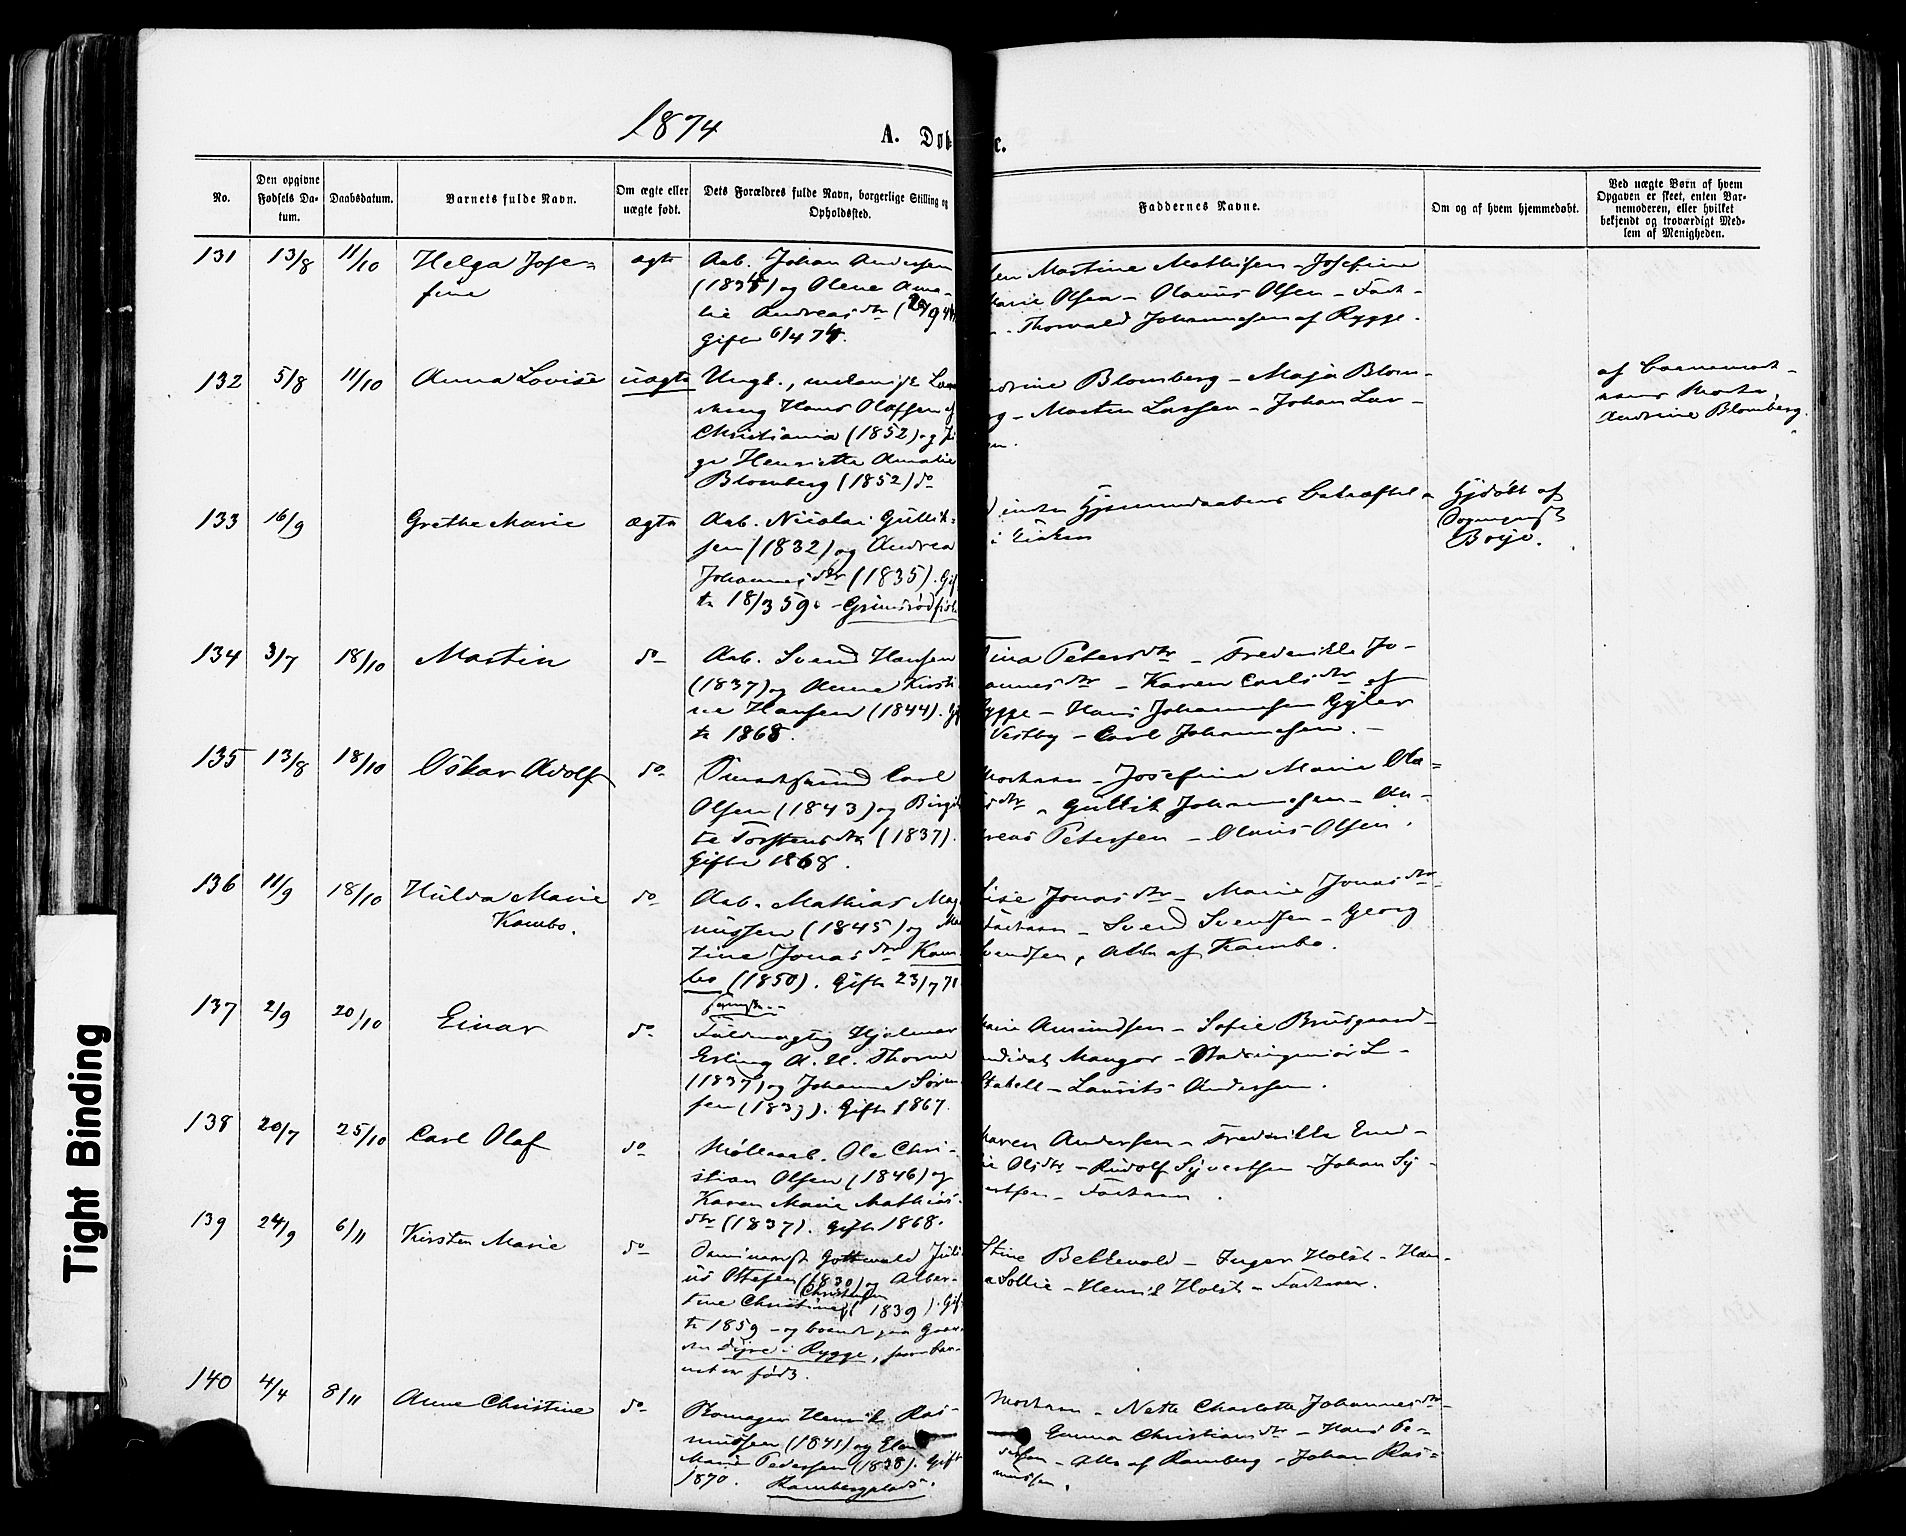 1874
A. Døb
c.
No.
Den opgivne Fødsels Datum.
Daabsdatum.
Barnets fulde Navn.
Om ægte eller uægte født.
Dets Forældres fulde Navn, borgerlige Stilling og Opholdssted.
Faddernes Navne.
Om og af hvem hjemmedøbt.
Ved uægte Børn af hvem Opgaven er skeet, enten Barnemoderen, eller hvilket bekjendt og troværdigt Medlem af Menigheden.
131 13/8 11/10 Helga Jose-
fine
ægte
Arb. Johan Andersen
og Olene Ama-
lie Andreasdtr
Gifte 6/4 74.
Martine Mathisen - Josefine
Marie Olsen - Olavus Olsen -
Thorvald Johannesen af Rygge.
132 5/8 11/10 Anna Lovise uægte
Ungk.,
Hans Olafsen af
Christiania (1852) og
Henriette Amalie
Blomberg (1852) do
Blomberg - Maja Blom-
- Morten Larsen - Johan Lar-
en.
af Barnemod-
rens Moder
Andrine Blomberg.
133 16/9 Grethe Marie ægte
Arb. Nicolai Gullik-
sen (1832) og Andrea
Johannesdtr (1835). Gif
te 18/3 59. -
inden Hjemmedaabens
i Kirken
Hjdøbt af
Boije.
134 3/7 18/10 Martin do
Arb. Svend Hansen
(1837) og Anne Kirsti
ne Hansen (1844). Gif
te 1868.
Tina Petersdtr - Frederikke Jo-
annesdtr - Karen Carlsdtr af
ygge - Hans Johannesen
Vestby - Carl Johannesen. -
135 13/8 18/10 Oskar Adolf do
Carl
Olsen (1843) og Birgit
te Torstensdtr (1837).
Gifte 1868.
Moderen - Josefine Marie Ola-
sdtr - Gullik Johannesen - An-
dreas Petersen - Olaus Olsen.
136 11/9 18/10 Hulda Marie
Kambo.
do
Arb. Mathias Mag
nussen (1845) og Ma
tine Jonasdtr Kam-
bo (1850). Gifte 23/7 71
Jonasdtr - Marie Jonasdtr
- Svend Svendsen - Georg
vendsen, Alle af Kambo.
137 2/9 20/10 Einar do
Fuldmægtig Hjalmar
Erling A. H. Thorne
(1837) og Johanne Søren
sen Gifte 1867.
Amundsen - Sofie Brusgaard -
ndidat Mangor - Stadsingeniør L -
Stabell - Laurits Andersen.
138 20/7 25/10 Carl Olaf do
Møllearb. Ole Chri-
stian Olsen (1846) og
Karen Marie Mathias-
dtr (1837). Gifte 1868.
Karen Andersen - Frederikke Emi-
lie Olsdtr - Rudolf Syvertsen - Johan Sy-
ertsen -
139 24/9 6/11 Kirsten Marie do
Seminarist Gottwald Juli
us Ottesen (1830) og Alber-
Christensen
tine Christine (1839). Gif-
te 1859 - og boende paa Gaar
den Dyre i Rygge, hvor Bar-
net er født.
Stine Bekkevold - Inger Holst - Han-
na Sollie - Henrik Holst - Faderen.
140 4/4 8/11 Anne Christine do
Skomager Henrik Ras-
mussen (1845) og
Marie Pedersen (1838). Gift
1870. Rambergplads.
Moderen - Nette Charlotte Johannesdtr -
Emma Christiansdtr - Hans Pe-
dersen - Alle af Ramberg - Johan Ras-
mussen.
Tight Binding